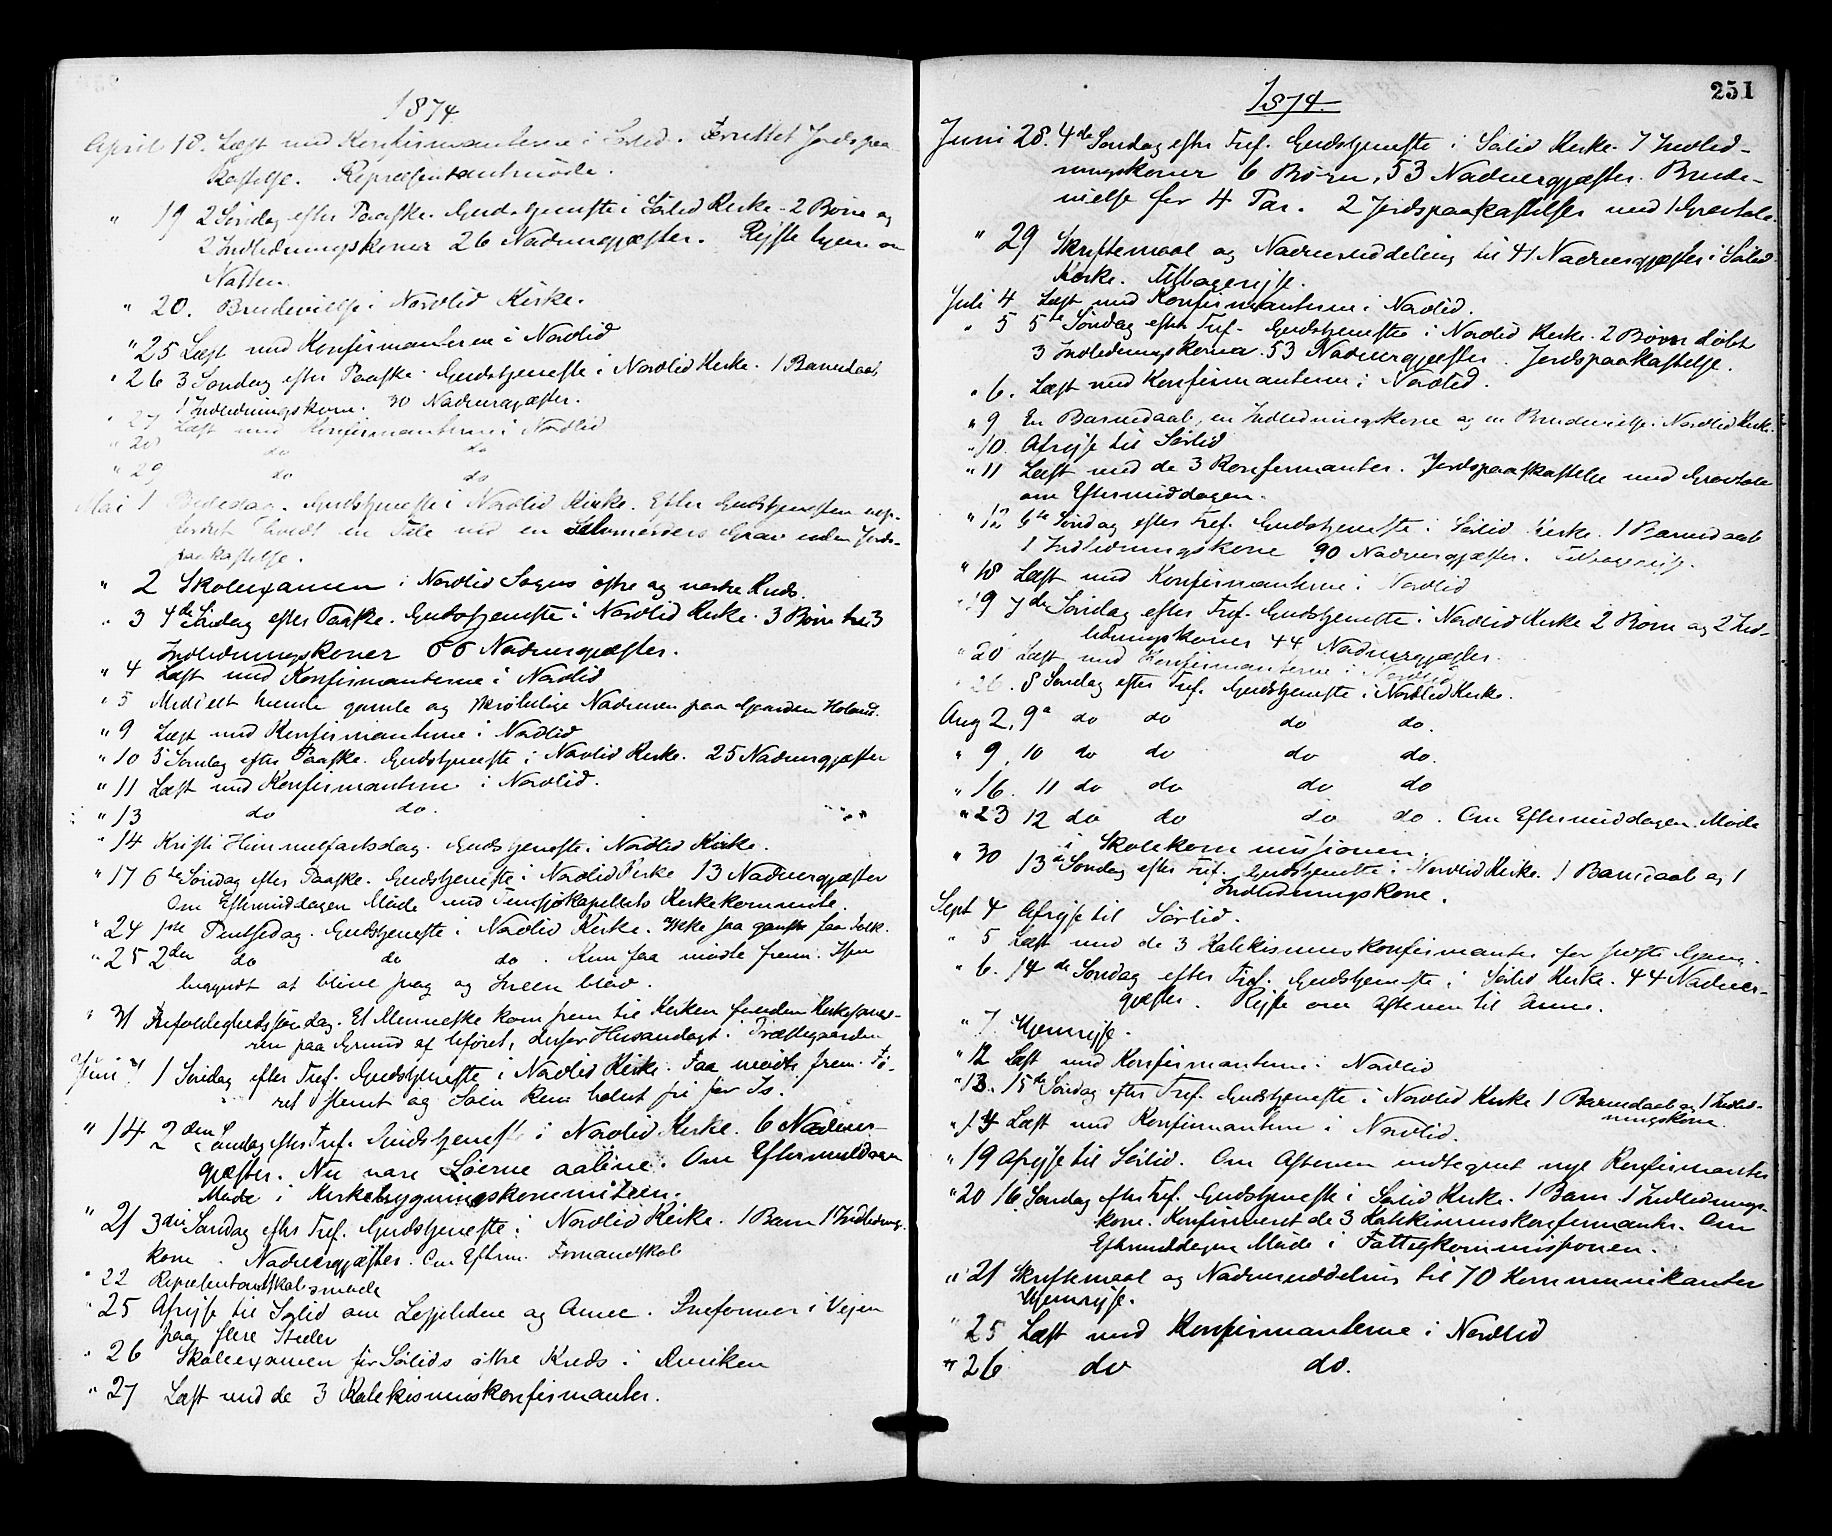 1874.
April 18. Læst med Konfirmanterne i Sørlid. Forrettet Jordspaa-
kastelse. Repræsentantmøde.
" 19 2 Søndag efter Paaske. Gudstjeneste i Sørlid Kirke - 2 Børn og
2 Indledningskoner 26 Nadvergjæster. Rejste hjem om
Natten.
" 20. Brudevielse i Nordlid Kirke.
" 25 Læst med Konfirmanterne i Nordlid
" 26 3 Søndag efter Paaske. Gudstjeneste i Nordlid Kirke. 1 Barnedaab
1 Indledningskone. 30 Nadvergjæster.
" 27 Læst med Konfirmanterne i Nordlid
" 28 do do
" 29 do do
Mai 1 Bededag. Gudstjeneste i Nordlid Kirke. Efter Gudstjenesten
holdt en Tale ved en Selvmorders Grav uden Jords-
paakastelse.
" 2 Skoleexamen i Nordlid Sogns østre og nordre Kreds.
" 3 4de Søndag efter Paaske. Gudstjeneste i Nordlid Kirke. 3 Børn 3
Indledningskoner 66 Nadvergjæster.
" 4 Læst med Konfirmanterne i Nordlid
" 5 Meddelt tvende gamle og skrøbelige Nadveren paa Gaarden Holand.
" 9 Læst med Konfirmanterne i Nordlid
" 10 5 Søndag efter Paaske. Gudstjeneste i Nordlid Kirke. 25 Nadvergjæster
" 11 Læst med Konfirmanterne i Nordlid.
" 13 do do. " " "
" 14 Kristi Himmelfartsdag. Gudstjeneste i Nordlid Kirke.
" 17 6te Søndag efter Paaske. Gudstjeneste i Nordlid Kirke 13 Nadvergjæster
Om Eftermiddagen Møde med Tunsjøkapellets Kirkekommite.
" 24 1ste Pentsedag. Gudstjeneste i Nordlid Kirke. Ikke saa ganske faa Folk.
" 25 2den do do do. Kun faa mødte frem. Isen
begyndt at blive svag og Sneen bløv.
" 31 Trefoldighedssøndag. Et Menneske kom frem til Kirken foruden Kirkesange-
ren paa Grund af Uføret, derfor Husandagt i Præstegaarden
Juni 7. 1 Søndag efter Tref. Gudstjeneste i Nordlid Kirke. Faa mødte frem. Fø-
ret slemt og Søen kun halvt fri for Is.
" 14 2den Søndag efter Tref. Gudstjeneste i Nordlid Kirke. 6 Nadver-
gjæster. Nu vare Søerne aabne. Om Eftermiddagen
Møde i Kirkebygningskommiteen.
" 21 3die Søndag efter Tref. Gudstjeneste i Nordlid Kirke. 1 Barn 1 Indlednings-
kone. Nadvergjæster. Om Efterm. Formandskab
" 22 Repræsentantskabsmøde
" 25 Afrejse til Sørlid om og . Sneformer i Vejen
paa flere Steder
" 26 Skoleexamen for Sørlids østre Kreds i
" 27 Læst med de 3 Katekismuskonfirmanter.
251
1874.
Juni 28. 4de Søndag efter Tref. Gudstjeneste i Sørlid Kirke. 7 Indled-
ningskoner 6 Børn, 53 Nadvergjæster. Brude-
vielse for 4 Par. 2 Jordspaakastelser med 1 Gravtale.
" 29 Skriftemaal og Nadveruddeling til 41 Nadvergjæster i Sørlid
Kirke. Tilbagerejse.
Juli 4 Læst med Konfirmanterne i Nordlid.
" 5 5te Søndag efter Tref. Gudstjeneste i Nordlid Kirke. 2 Børn døbt
3 Indledningskoner. 53 Nadvergjæster. Jordspaakastelse.
" 6. Læst med Konfirmanterne i Nordlid.
" 9 En Barnedaab, en Indledningskone og en Brudevielse i Nordlid Kirke.
" 10. Afrejse til Sørlid
" 11 Læst med de 3 Konfirmanter. Jordspaakastelse med Gravtale
om Eftermiddagen.
" 12 6te Søndag efter Tref. Gudstjeneste i Sørlid Kirke. 1 Barnedaab
1 Indledningskone 90 Nadvergjæster. Tilbagerejse.
" 18 Læst med Konfirmanterne i Nordlid
" 19 7de Søndag efter Tref. Gudstjeneste i Nordlid Kirke 2 Børn og 2 Ind-
ledningskoner 44 Nadvergjæster.
" 20 Læst med Konfirmanterne i Nordlid
" 26. 8 Søndag efter Tref. Gudstjeneste i Nordlid Kirke.
Aug 2, 9 do do do do.
" 9, 10 do do do do.
" 16. 11 do do do do
" 23 12 do do do do. Om Eftermiddagen Møde
i Skolekommissionen.
" 30 13de Søndag efter Tref. Gudstjeneste i Nordlid Kirke. 1 Barnedaab og 1
Indledningskone.
Sept 4 Afrejse til Sørlid.
" 5 Læst med de 3 Katekismuskonfirmanter for sidste Gang.
" 6. 14de Søndag efter Tref. Gudstjeneste i Sørlid Kirke. 44 Nadver-
gjæster. Rejse om Aftenen til
" 7. Hjemrejse.
" 12 Læst med Konfirmanterne i Nordlid
" 13. 15de Søndag efter Tref. Gudstjeneste i Nordlid Kirke 1 Barnedaab og 1 Indled-
ningskone.
" 14 Læst med Konfirmanterne i Nordlid.
" 19 Afrejse til Sørlid. Om Aftenen indtegnet nye Konfirmanter
" 20 16 Søndag efter Tref. Gudstjeneste i Sørlid Kirke. 1 Barn 1 Indlednings-
kone. Konfirmeret de 3 Katekismuskonfirmanter. Om
Eftermiddagen Møde i Fattigkommissionen.
" 21 Skriftemaal og Nadveruddeling til 70 Kommunikanter
Hjemrejse.
" 25 Læst med Konfirmanterne i Nordlid
" 26 do do.